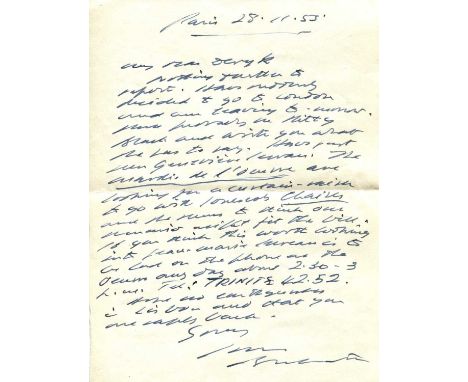 Paris 28.11.55
My dear Deryk
Nothing further to
report. Have suddenly
decided to go to London
and am leaving to-morrow.
Have to
and write you what
he has to say. Have just
seen Geneviève Serreau. The
de l'Oeuvre are
looking for a curtain-raiser
to go with Ionesco's Chairs
and she seems to think our
might fit the bill.
If you think this worth looking
into Jean-Marie Serreau is to
be had on the phone at the
Oeuvre any day about 2.30 - 3
p.m. Tel: TRINITE 42.52.
Hope no earthquakes
in Lisbon and that you
are safely back.
Yours
Sam
Beckett